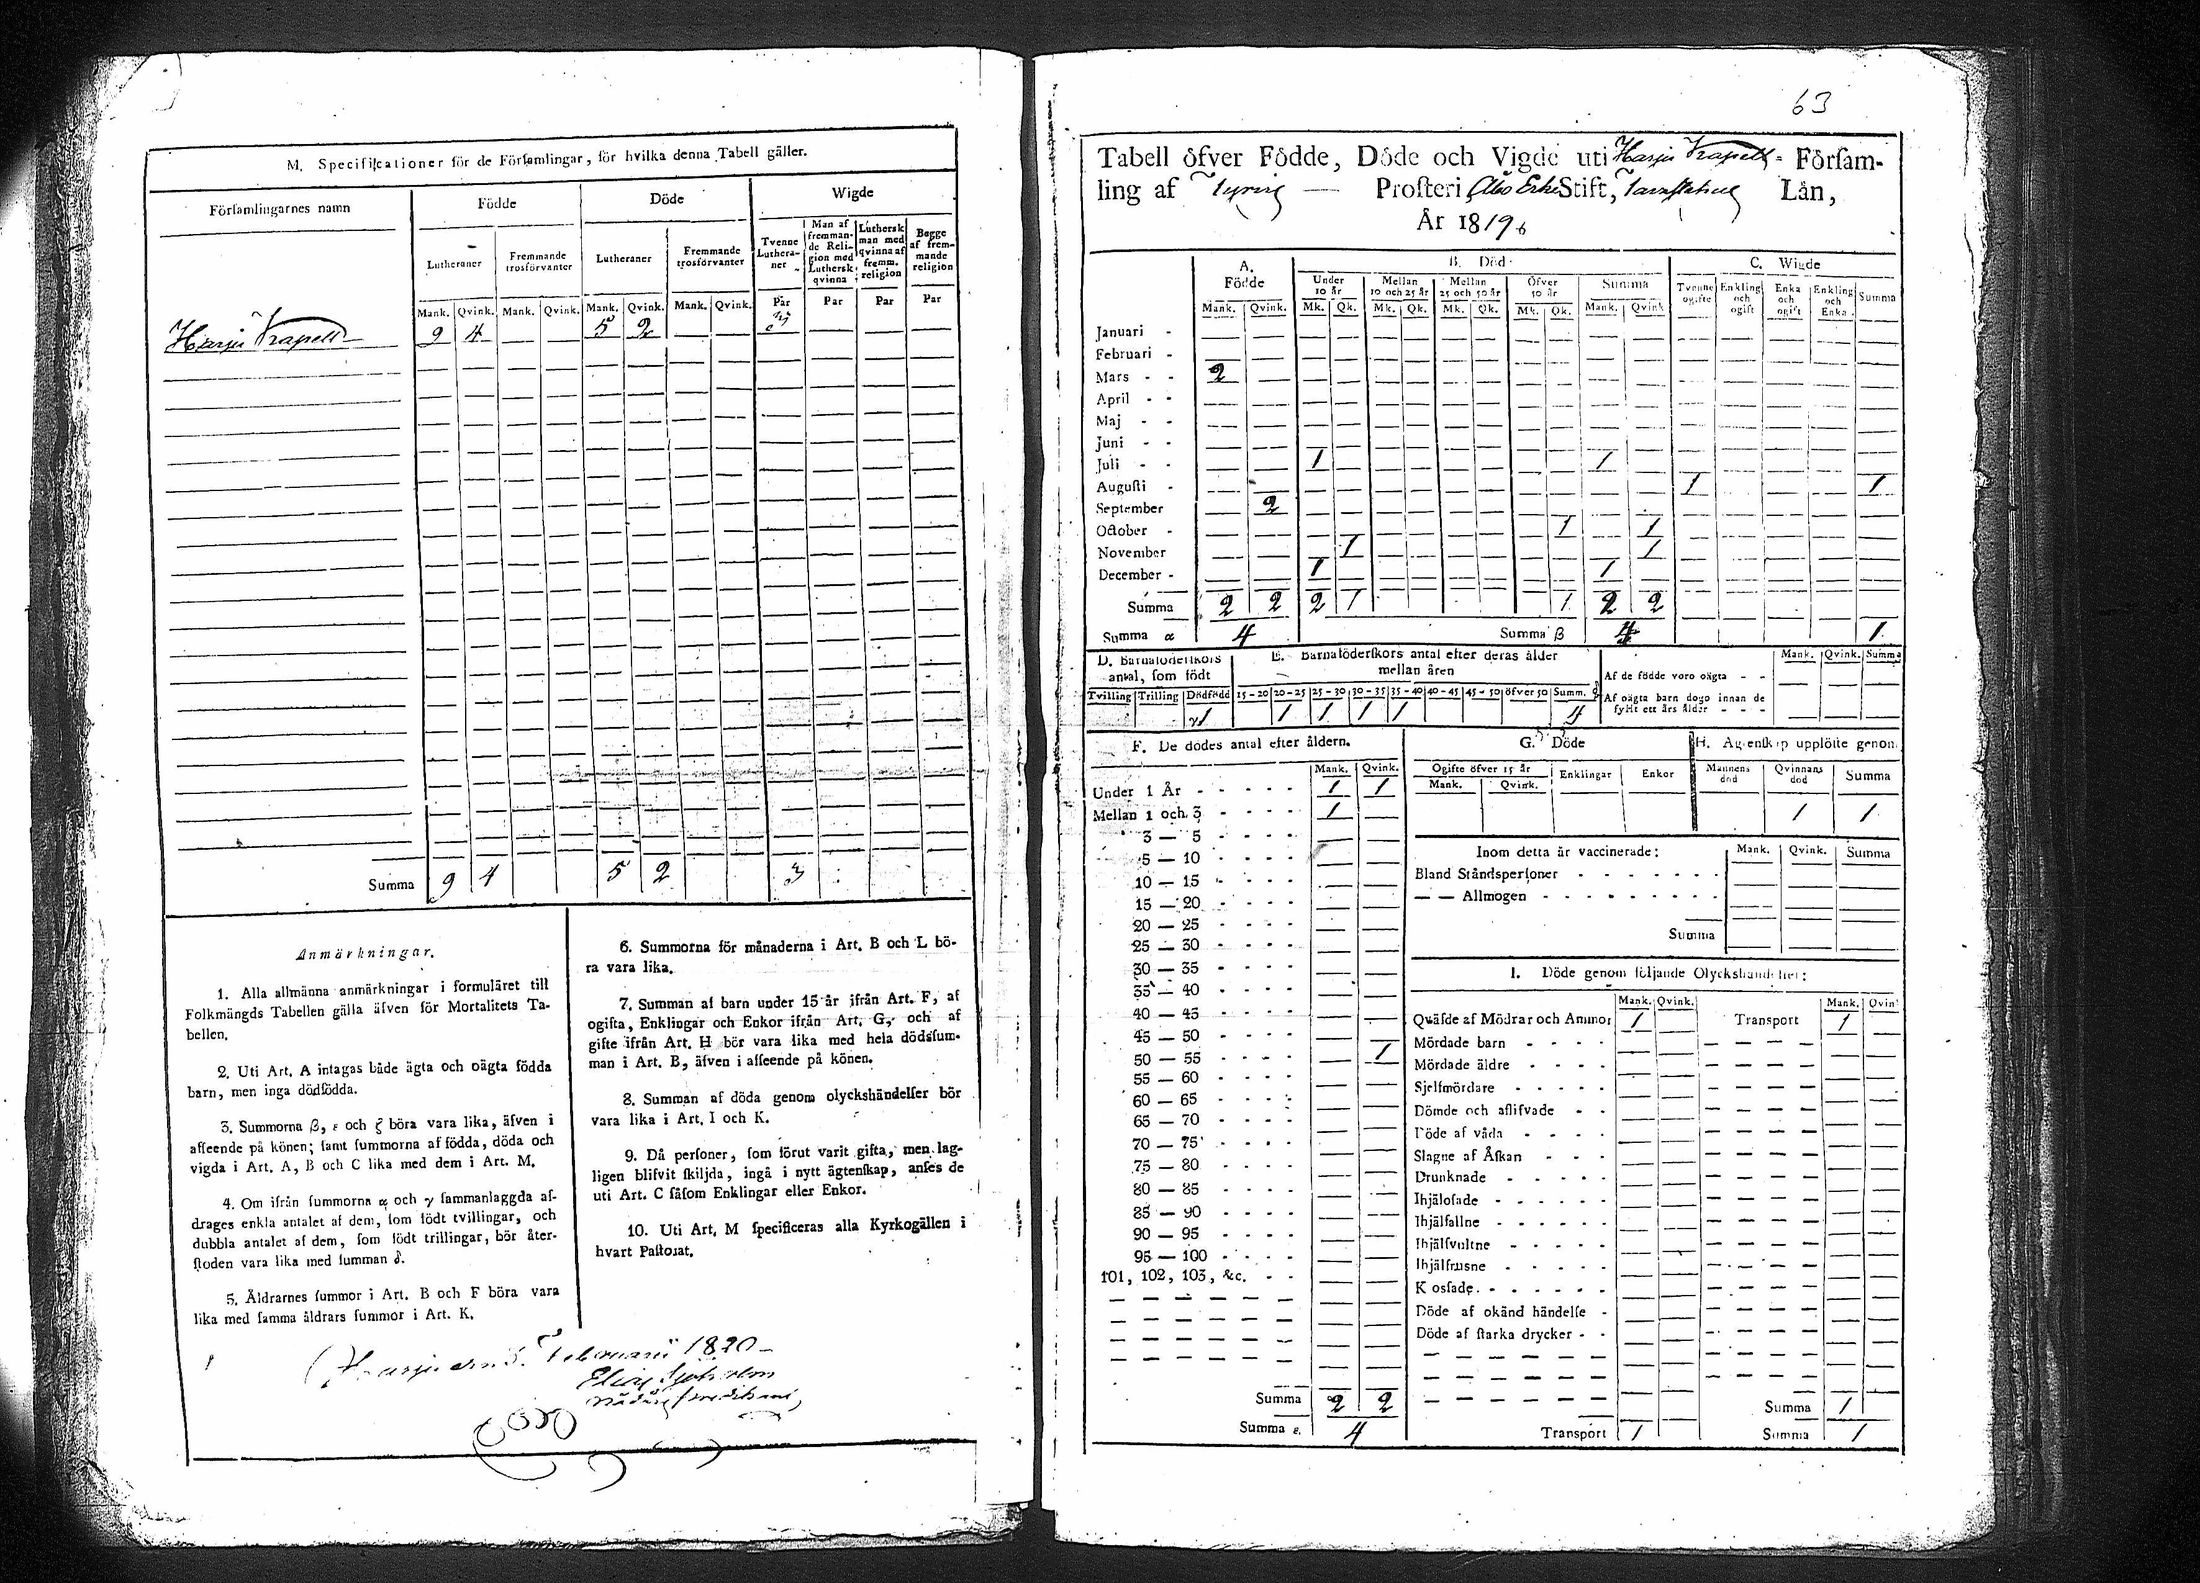 M. Specificationer för de Församlingar, för hvilka denna Tabell gäller.
Församlingarnes namn
Födde
Döde
Wigde
Lutheraner
Fremmande trosförvanter
Lutheraner
Fremmande trosförvanter
Tvenne Lutheraner
Man af fremmande Religion med Luthersk qvinna
Luthersk man med qvinna af fremm. religion
Begge af fremmande religion
Mank. Qvink. Mank. Qvink. Mank. Qvink. Mank. Qvink. Pår Par Par Par
Harju Kapell 9 4 — — 5 2 — — 3 — — —
Summa 9 4 5 2 3
Anmärkningar.
1. Alla allmänna anmärkningar i formuläret till
Folkmängds Tabellen gälla äfven för Mortalitets Ta-
bellen.
2. Uti Art. A intagas både ägta och oägta födda
barn, men inga dödfödda.
3. Summorna β, ε och ζ böra vara lika, äfven i
affeende på könen; famt fummorna af födda, döda och
vigda i Art. A, B och C lika med dem i Art. M.
4. Om ifrån fummorna α och γ fammanlaggda af-
drages enkla antalet af dem, fom födt tvillingar, och
dubbla antalet af dem, fom födt trillingar, bör åter-
ftoden vara lika med fumman δ.
5. Åldrarnes fummor i Art. B och F böra vara
lika med famma åldrars fummor i Art. K.
6. Summorna för månaderna i Art. B och L bö-
ra vara lika.
7. Summan af barn under 15 år ifrån Art. F, af
ogifta, Enklingar och Enkor ifrån Art. G, och af
gifte ifrån Art. H bör vara lika med hela dödsfum-
man i Art. B, äfven i affeende på könen.
8. Summan af döda genom olyckshändelfer bör
vara lika i Art. I och K.
9. Då perfoner, fom förut varit gifta, men lag-
ligen blifvit fkiljda, ingå i nytt ägtenfkap, anfes de
uti Art. C fåfom Enklingar eller Enkor.
10. Uti Art. M fpecificeras alla Kyrkogällen i
hvart Paftorat.
Harju den 5. Februarii 1820
63
Tabell öfver Födde, Döde och Vigde uti Harju Kapell Förfam-
ling af Tyrvis — Profteri, Åbo Erke Stift, Tavastehus Län,
År 1819.
A. Födde
B. Död
C. Wigde
Under 10 år
Mellan 10 och 25 år
Mellan 25 och 50 år
Öfver 50 år
Summa
Tvenne ogifte
Enkling och ogift
Enka och ogift
Enkling och Enka
Summa
Mank. Qvink. Mk. Qk. Mk. Qk. Mk. Qk. Mk. Qk. Mank. Qvink
Januari
Februari
Mars 2
April
Maj
Juni
Juli 1 1
Augufti 1 1
September 2
October 1 1
November 1 1
December 1 1
Summa 2 2 2 1 1 2 2
Summa α 4 Summa β 4 1
D. Barnaföderfkors antal, fom födt
E. Barnaföderfkors antal efter deras ålder mellan åren
Mank. Qvink. Summa
Tvilling Trilling Dödfödd 15-20 20-25 25-30 30-35 35-40 40-45 45-50 öfver 50 Summ. δ
γ1 1 1 1 1 4
Af de födde voro oägta
Af oägta barn dogo innan de
fyllt ett års ålder
F. De dödes antal efter åldern.
Mank. Qvink.
Under 1 År 1 1
Mellan 1 och 3 1
3 — 5
5 — 10
10 — 15
15 — 20
20 — 25
25 — 30
30 — 35
35 — 40
40 — 45
45 — 50
50 — 55 1
55 — 60
60 — 65
65 — 70
70 — 75
75 — 80
80 — 85
85 — 90
90 — 95
95 — 100
101, 102, 103, &c.
Summa 2 2
Summa ε. 4
G. Döde
Ogifte öfver 15 år
Mank. Qvink.
Enklingar
Enkor
H. Agtenfkap upplöfte genom
Mannens död
Qvinnans död
Summa
1 1
Inom detta år vaccinerade: Mank. Qvink. Summa
Bland Ståndsperfoner
— — Allmogen
Summa
I. Döde genom följande Olyckshändelfer:
Mank. Qvink. Mank. Qvin
Quäfde af Mödrar och Ammor 1 Transport 1
Mördade barn
Mördade äldre
Sjelfmördare
Dömde och aflifvade
Döde af våda
Slagne af Åfkan
Drunknade
Ihjälofade
Ihjälfallne
Ihjälfvultne
Ihjälfrusne
Kolosade
Döde af okänd händelfe
Döde af ftarka drycker
Summa 1
Transport 1 Summa 1